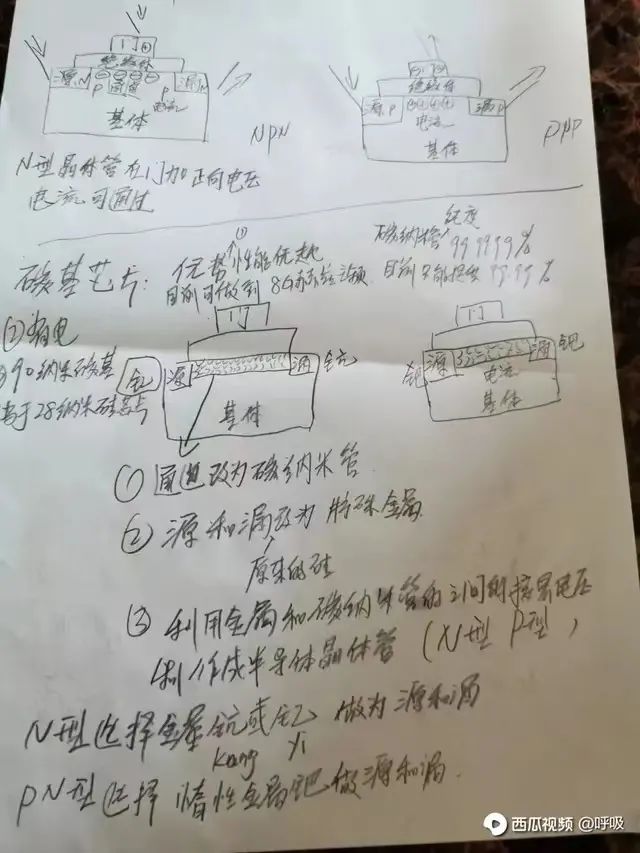 门
绝缘体
源 N
P
P
漏 N
电流
基体
NPN
门
绝缘体
源 P
漏 P
电流
基体
PNP
N型晶体管在门加正向电压
电流可通过
碳基芯片:
优势
①
性能优越
目前可做到 8G赫兹
碳纳米管 纯度
99.9999%
目前
99.99%
②省电
90纳米碳基
高于28纳米硅芯片
门
钇
源
漏
钪
基体
门
钯
源
漏
钯
电流
基体
① 通道改为碳纳米管
② 源和漏改为 特殊金属
原来的硅
③ 利用金属和碳纳米管的之间的接界电压
制作成半导体晶体管 (N型 P型)
N型选择金属钪或钇 做为源和漏
kang yi
PN型选择 惰性金属钯做源和漏.
西瓜视频 @呼吸